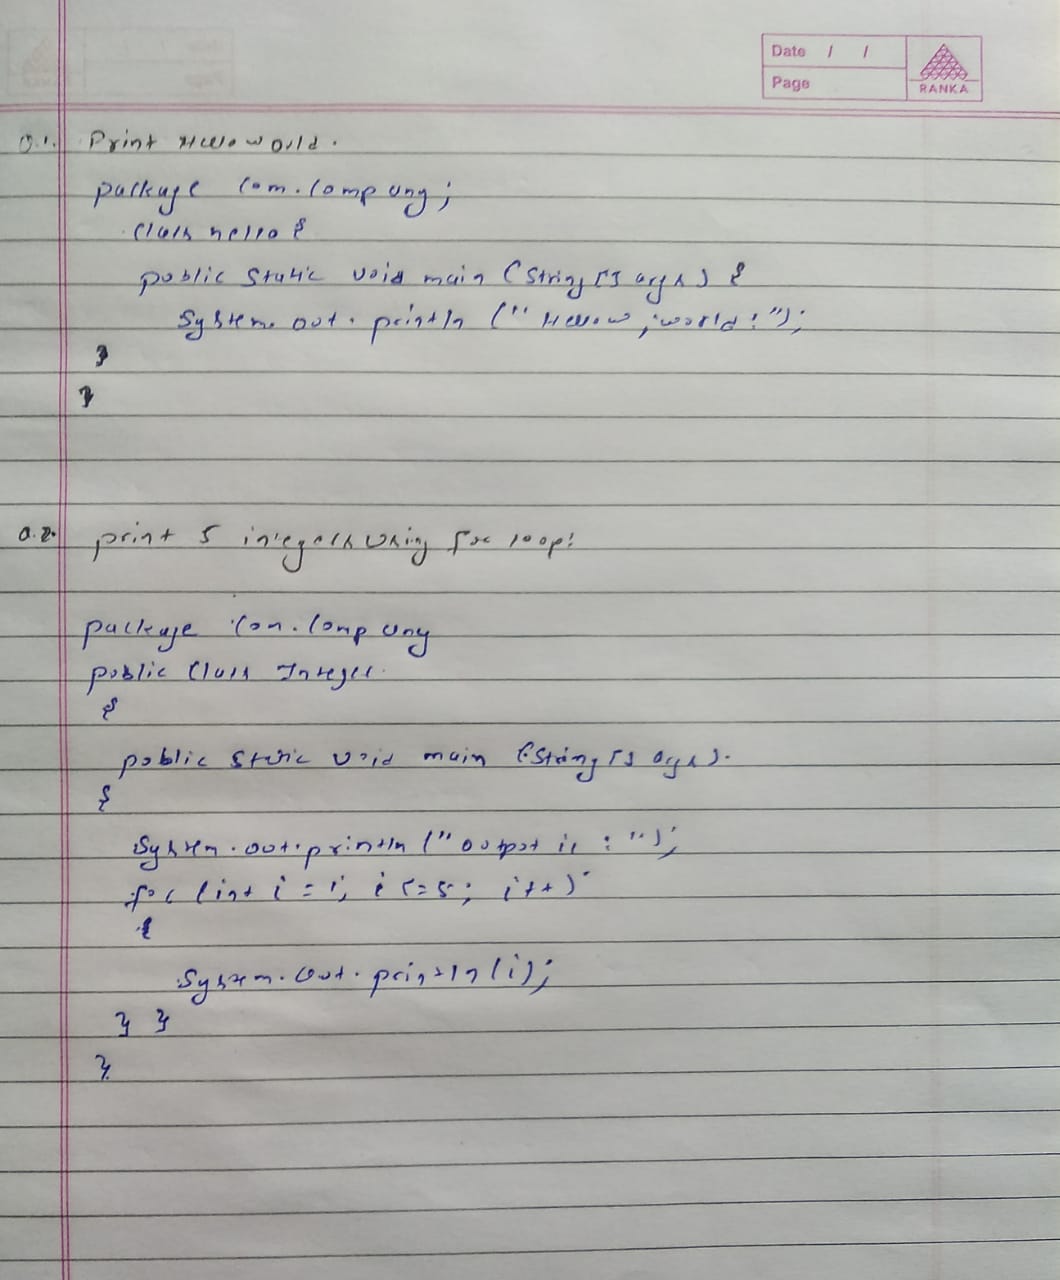 Date / /
Page
RANKA
Q.1. Print Hello World.
package com.company;
class hello {
public static void main (String [] args) {
System.out.println ("Hellow, world!");
}
}
Q.2. print 5 integers using for loop:
package com.company
public class Integer
{
public static void main (String [] args).
{
System.out.println ("output is : ");
for (int i = 1; i <= 5; i++)
{
System.out.println (i);
} }
}